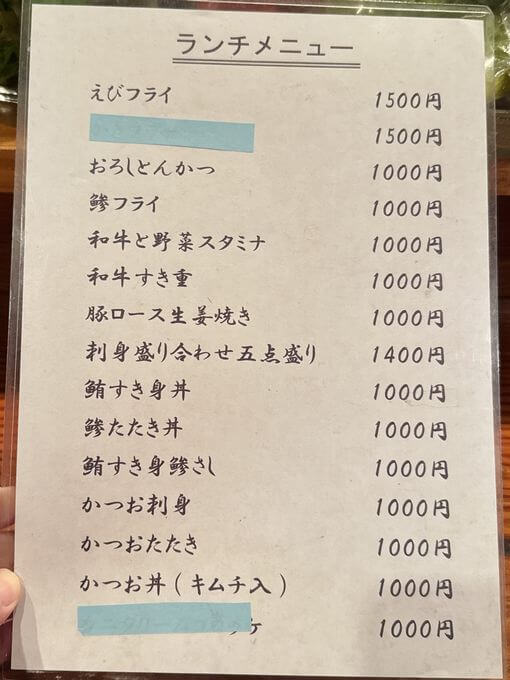 ランチメニュー
えびフライ 1500円
1500円
おろしとんかつ 1000円
鯵フライ 1000円
和牛と野菜スタミナ 1000円
和牛すき重 1000円
豚ロース生姜焼き 1000円
刺身盛り合わせ五点盛り 1400円
鮪すき身丼 1000円
鯵たたき丼 1000円
鮪すき身鯵さし 1000円
かつお刺身 1000円
かつおたたき 1000円
かつお丼(キムチ入) 1000円
ケ 1000円